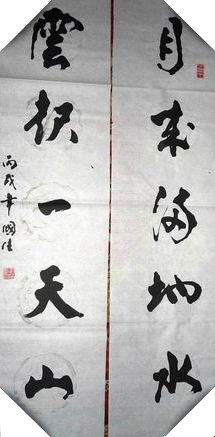 月來滿地水
雲起一天山
丙戌年國